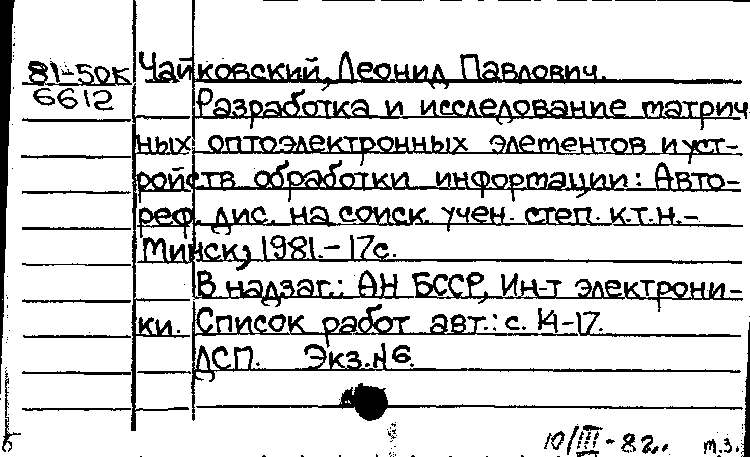 81-50к Чайковский, Леонид Павлович.
6612 Разработка и исследование матрич
ных оптоэлектронных элементов и уст-
ройств обработки информации: Авто-
реф. дис. на соиск. учен. степ. к.т.н.-
Минск, 1981.-17с.
В надзаг.: АН БССР, Ин-т электрони-
ки. Список работ авт.: с. 14-17.
ДСП. Экз.№6.
10/III-82г. т.з.